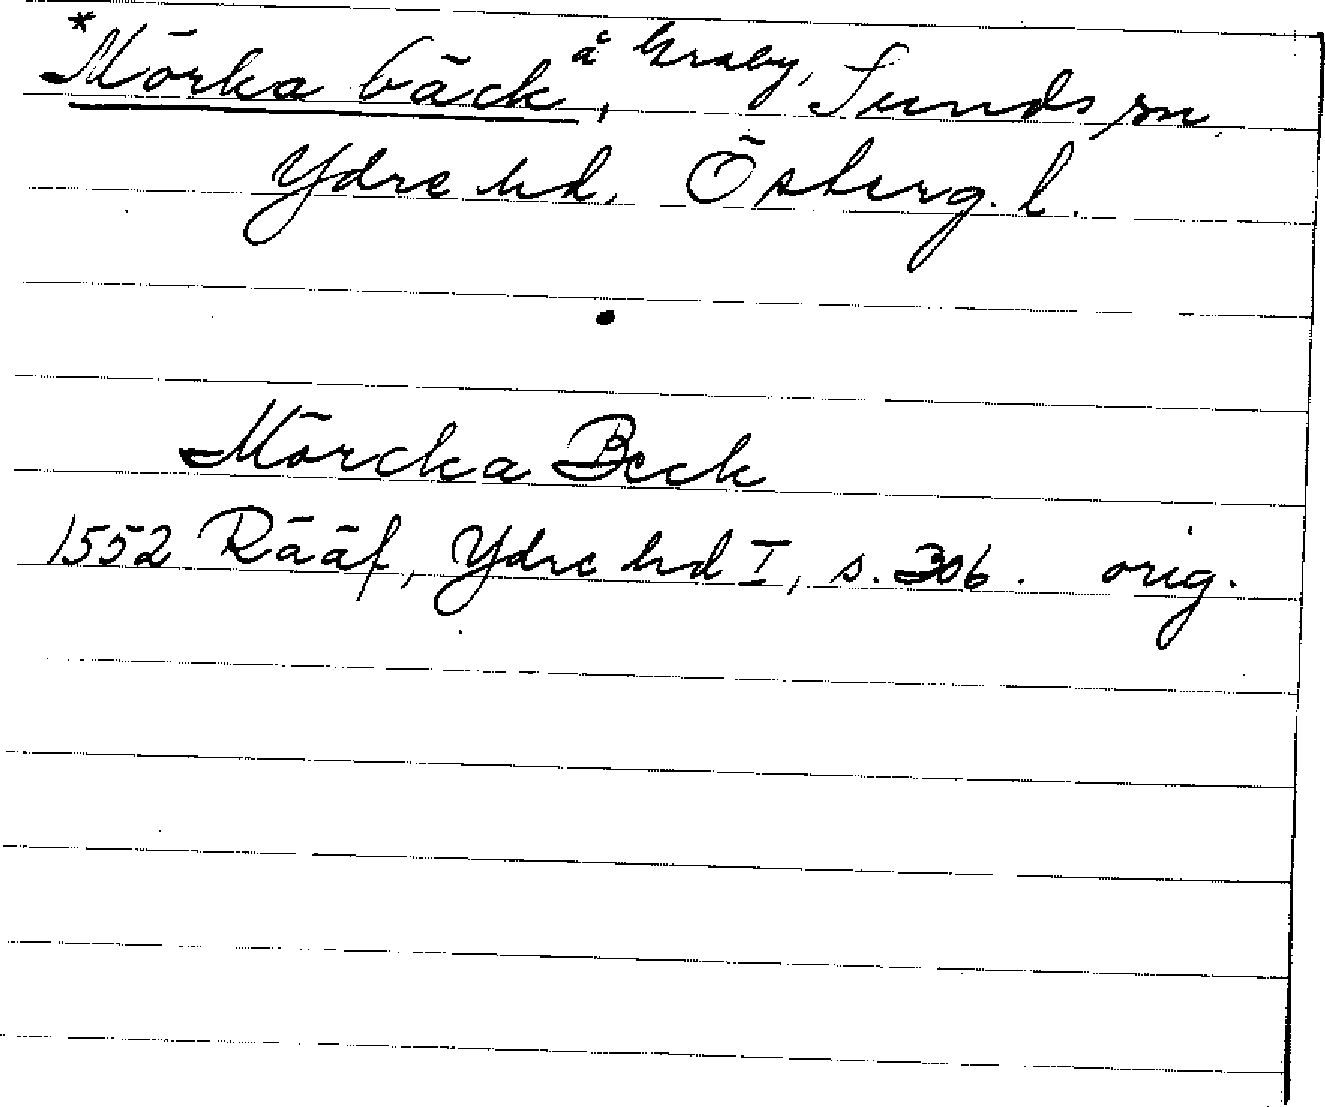 *Mörka bäck, å Graby, Sunds sn
Ydre hd, Österg. l.
Mörcka Beck
1552 Rääf, Ydre hd I, s. 306. orig.